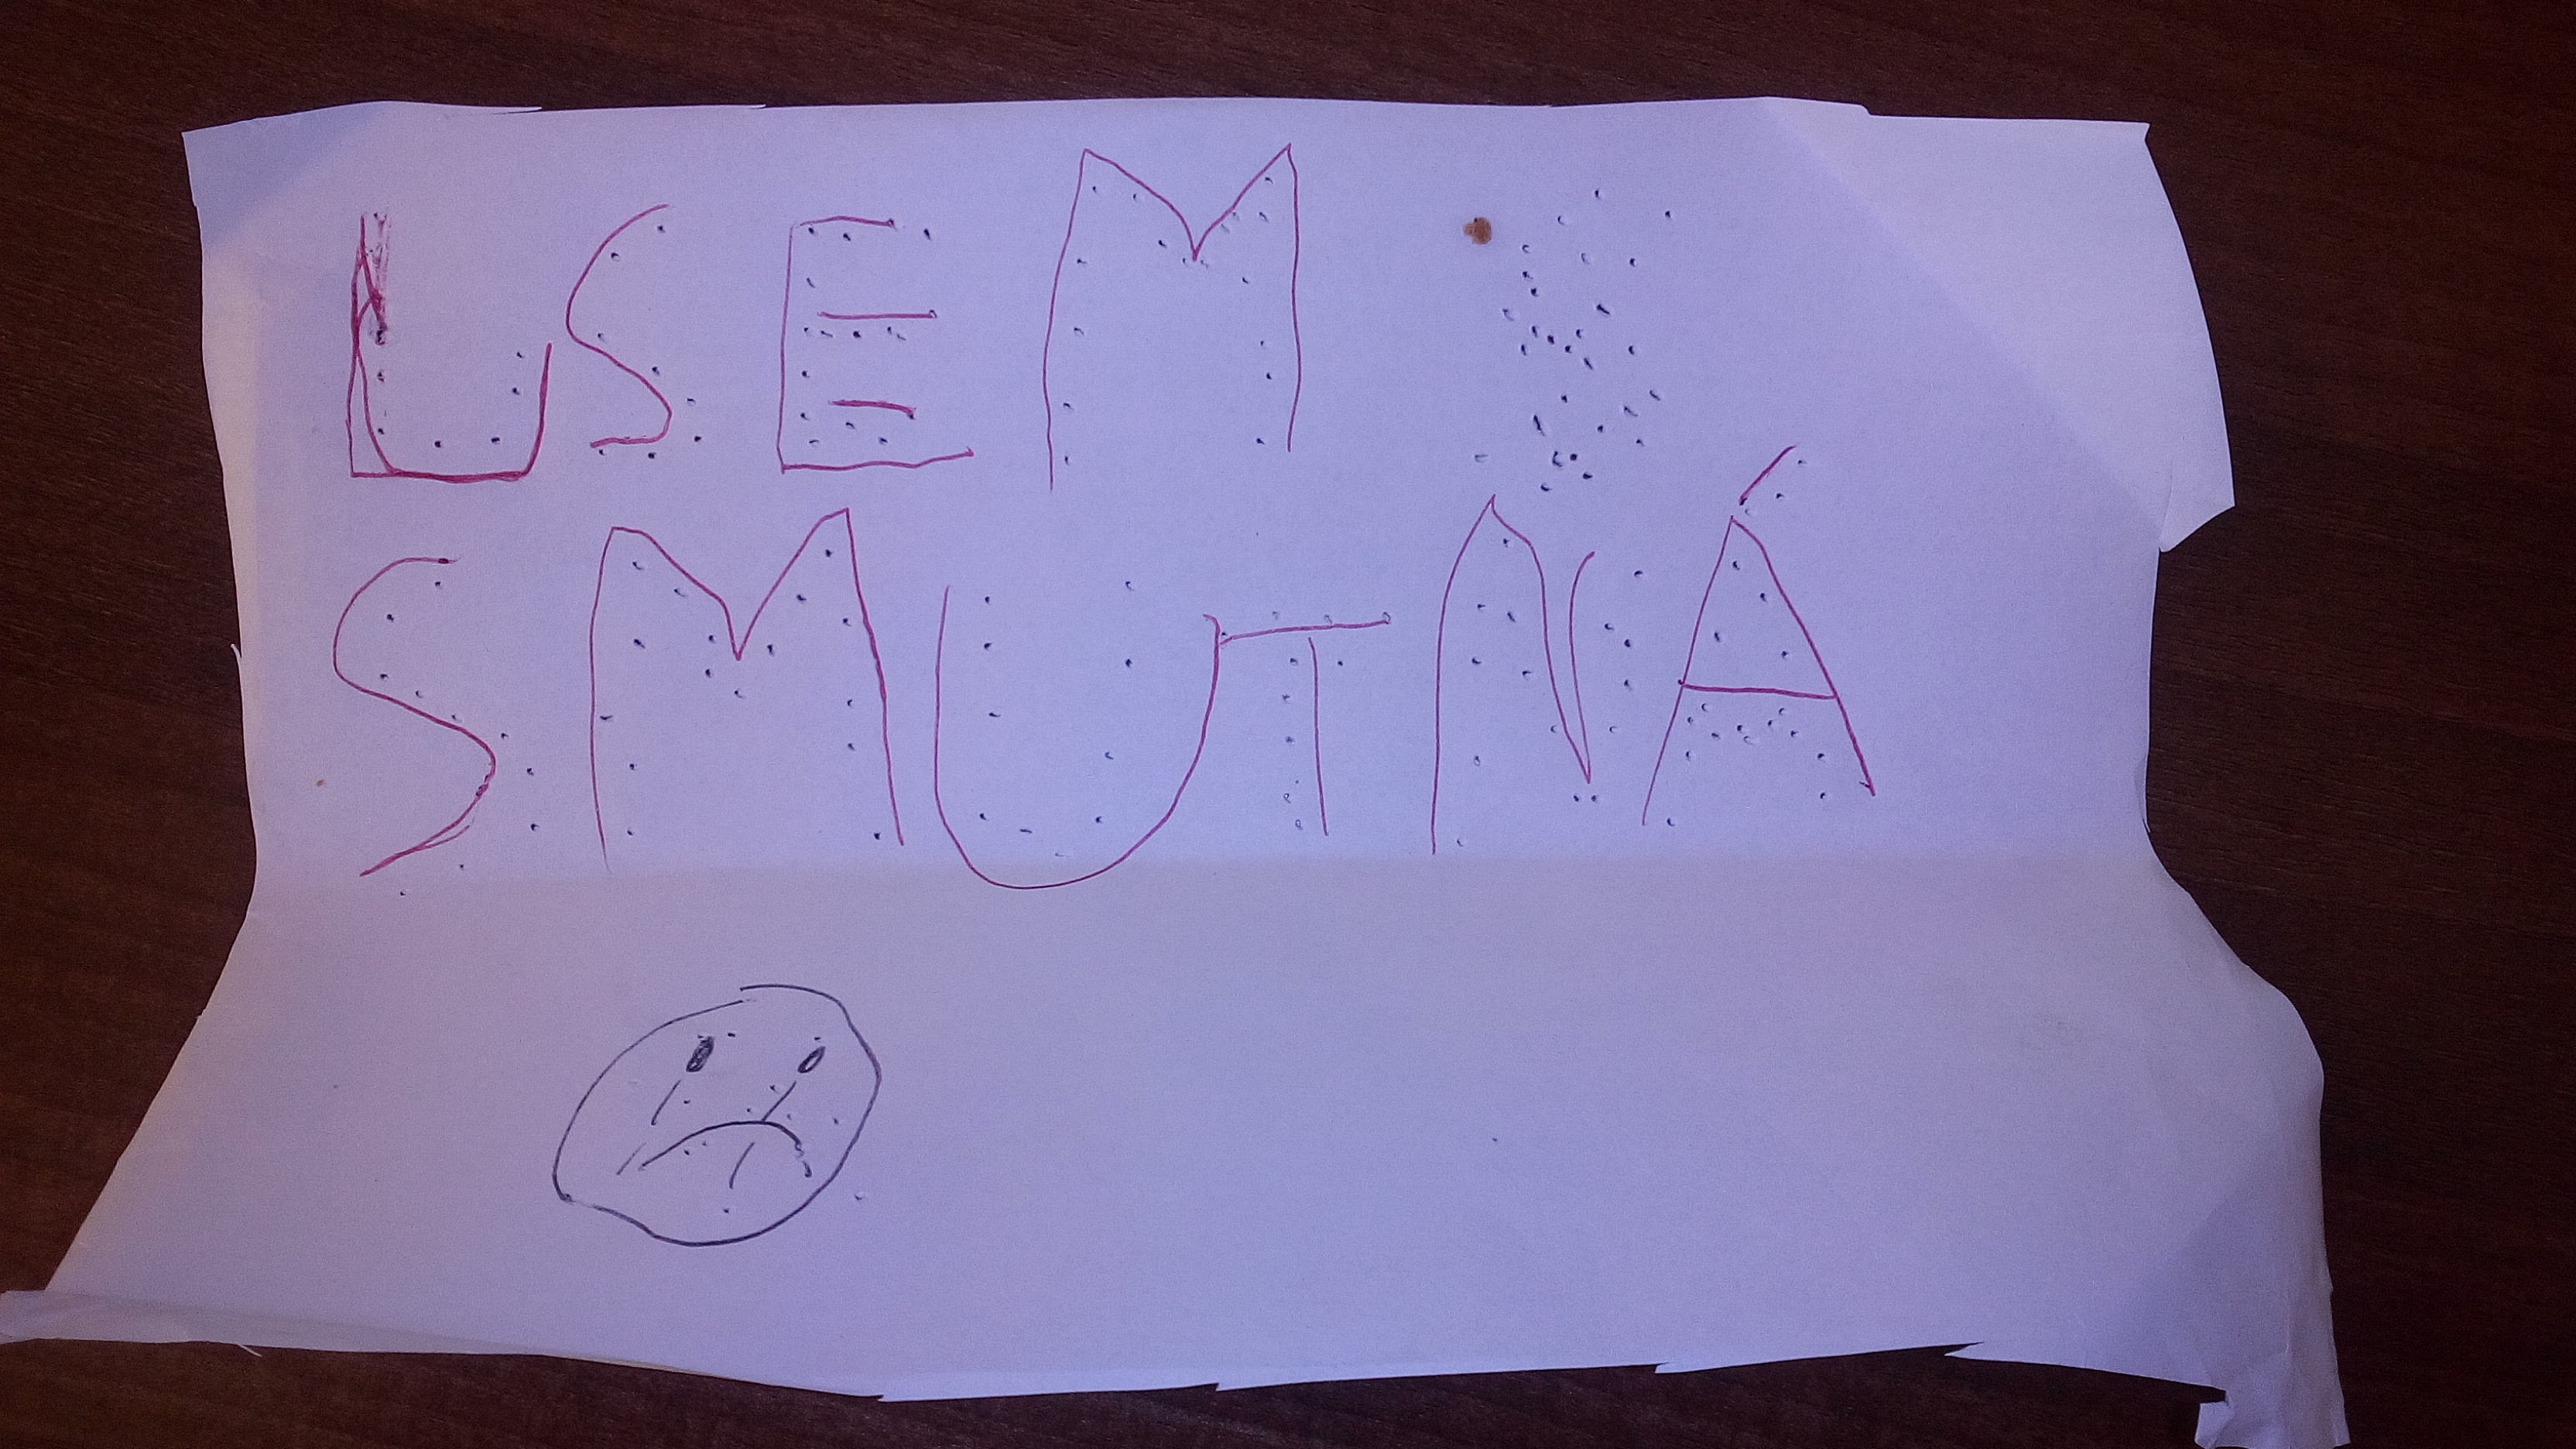 USEM
SMUTNÁ